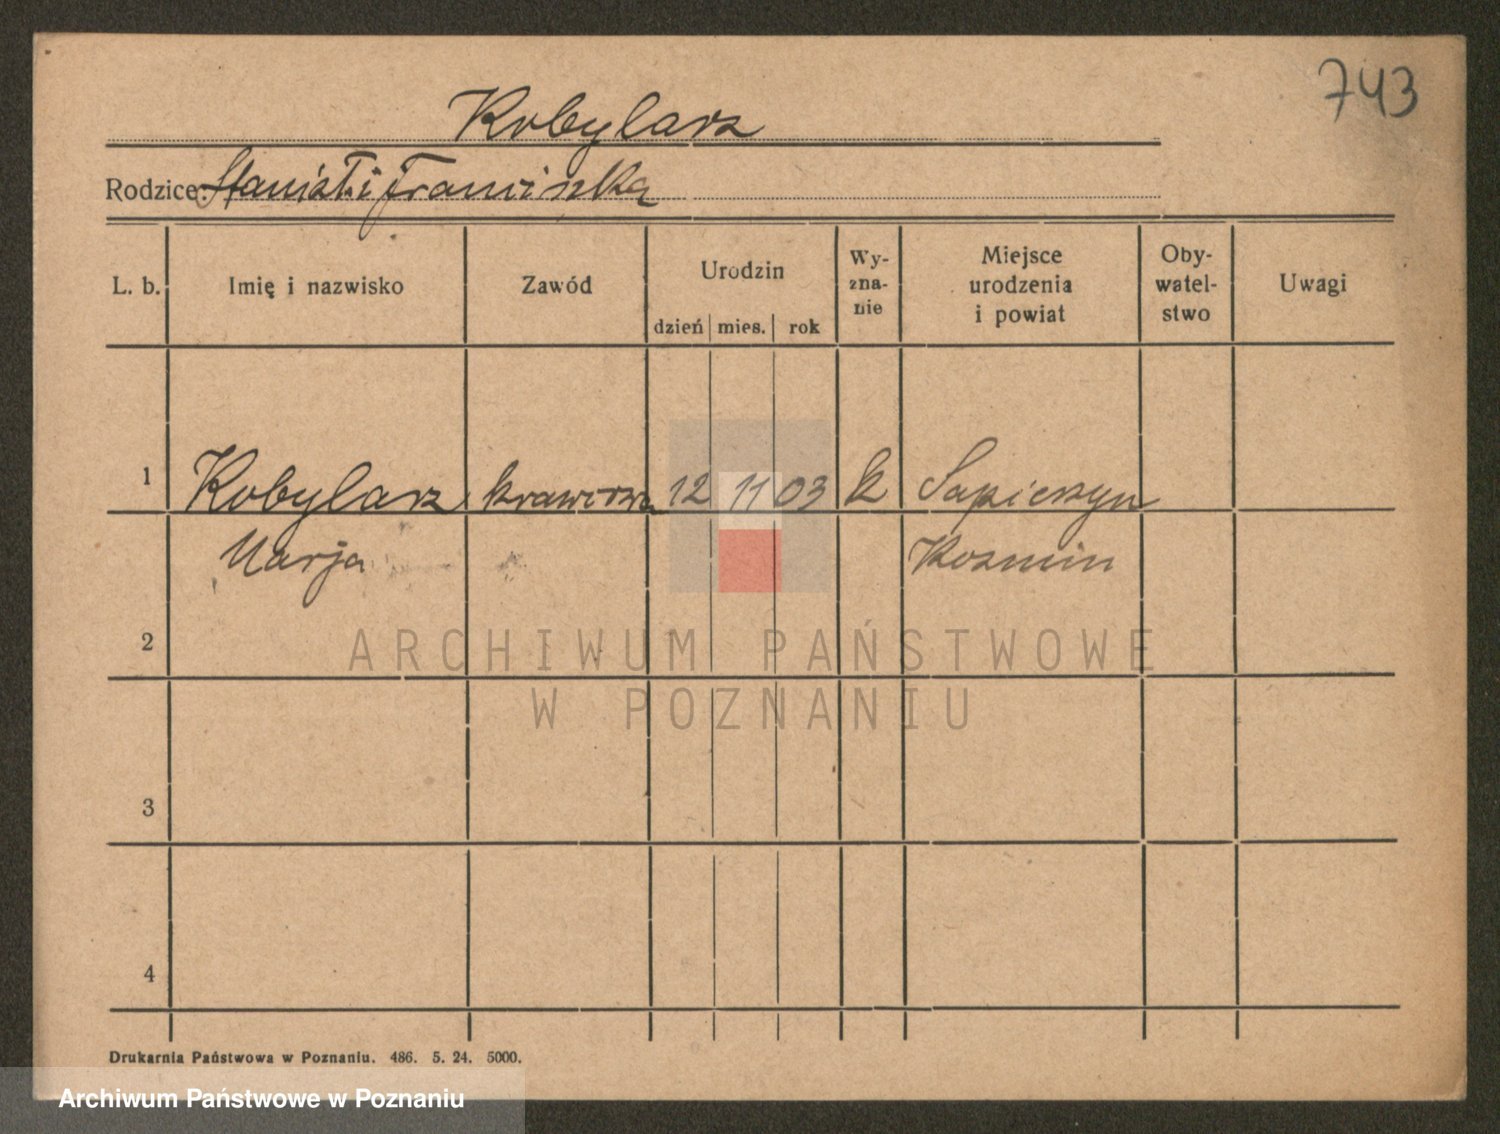 743
Kobylarz
Rodzice: Stanisł. i Franciszka
L. b. Imię i nazwisko Zawód Urodzin dzień mies. rok Wy- zna- nie Miejsce urodzenia i powiat Oby- watel- stwo Uwagi
1 Kobylarz krawcowa 12 11 03 k Sapieżyn
Marja Kozmin
2
3
4
Drukarnia Państwowa w Poznaniu. 486. 5. 24. 5000.
ARCHIWUM PAŃSTWOWE
W POZNANIU
Archiwum Państwowe w Poznaniu